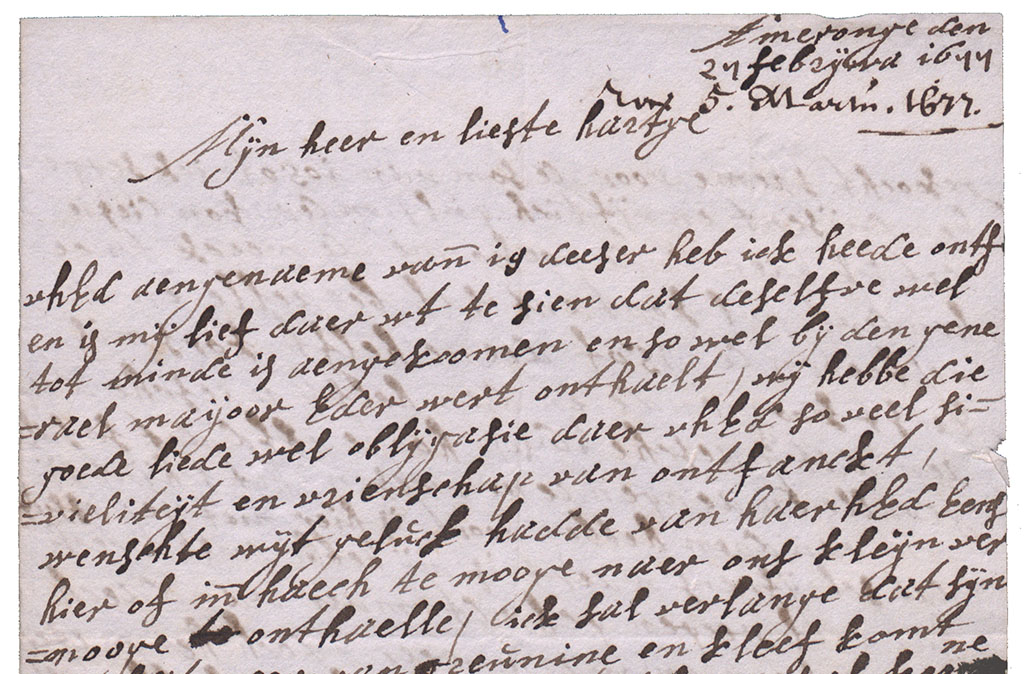 Ameronge den
27 febrijwa 1677
5. Martii. 1677.
Mijn heer en lieste hartge
uhEd aengenaeme van 19 deeser heb ick heede ontf
en is mij lief daer wt te sien dat deselfve wel
tot minde is aengekoomen en so wel bij den gene
=rael mayoor Eder wert onthaelt, wij hebbe die
goede liede wel oblijgasie daer uhEd so veel si=
=vieliteijt en vrienschap van ontfanckt,
wenschte wijt geluck hadde van haer hEd Eens
hier of in haech te mooge naer ons kleijn ver
=mooge onthaelle, ick sal verlange dat sijn
van en kleef komt ne